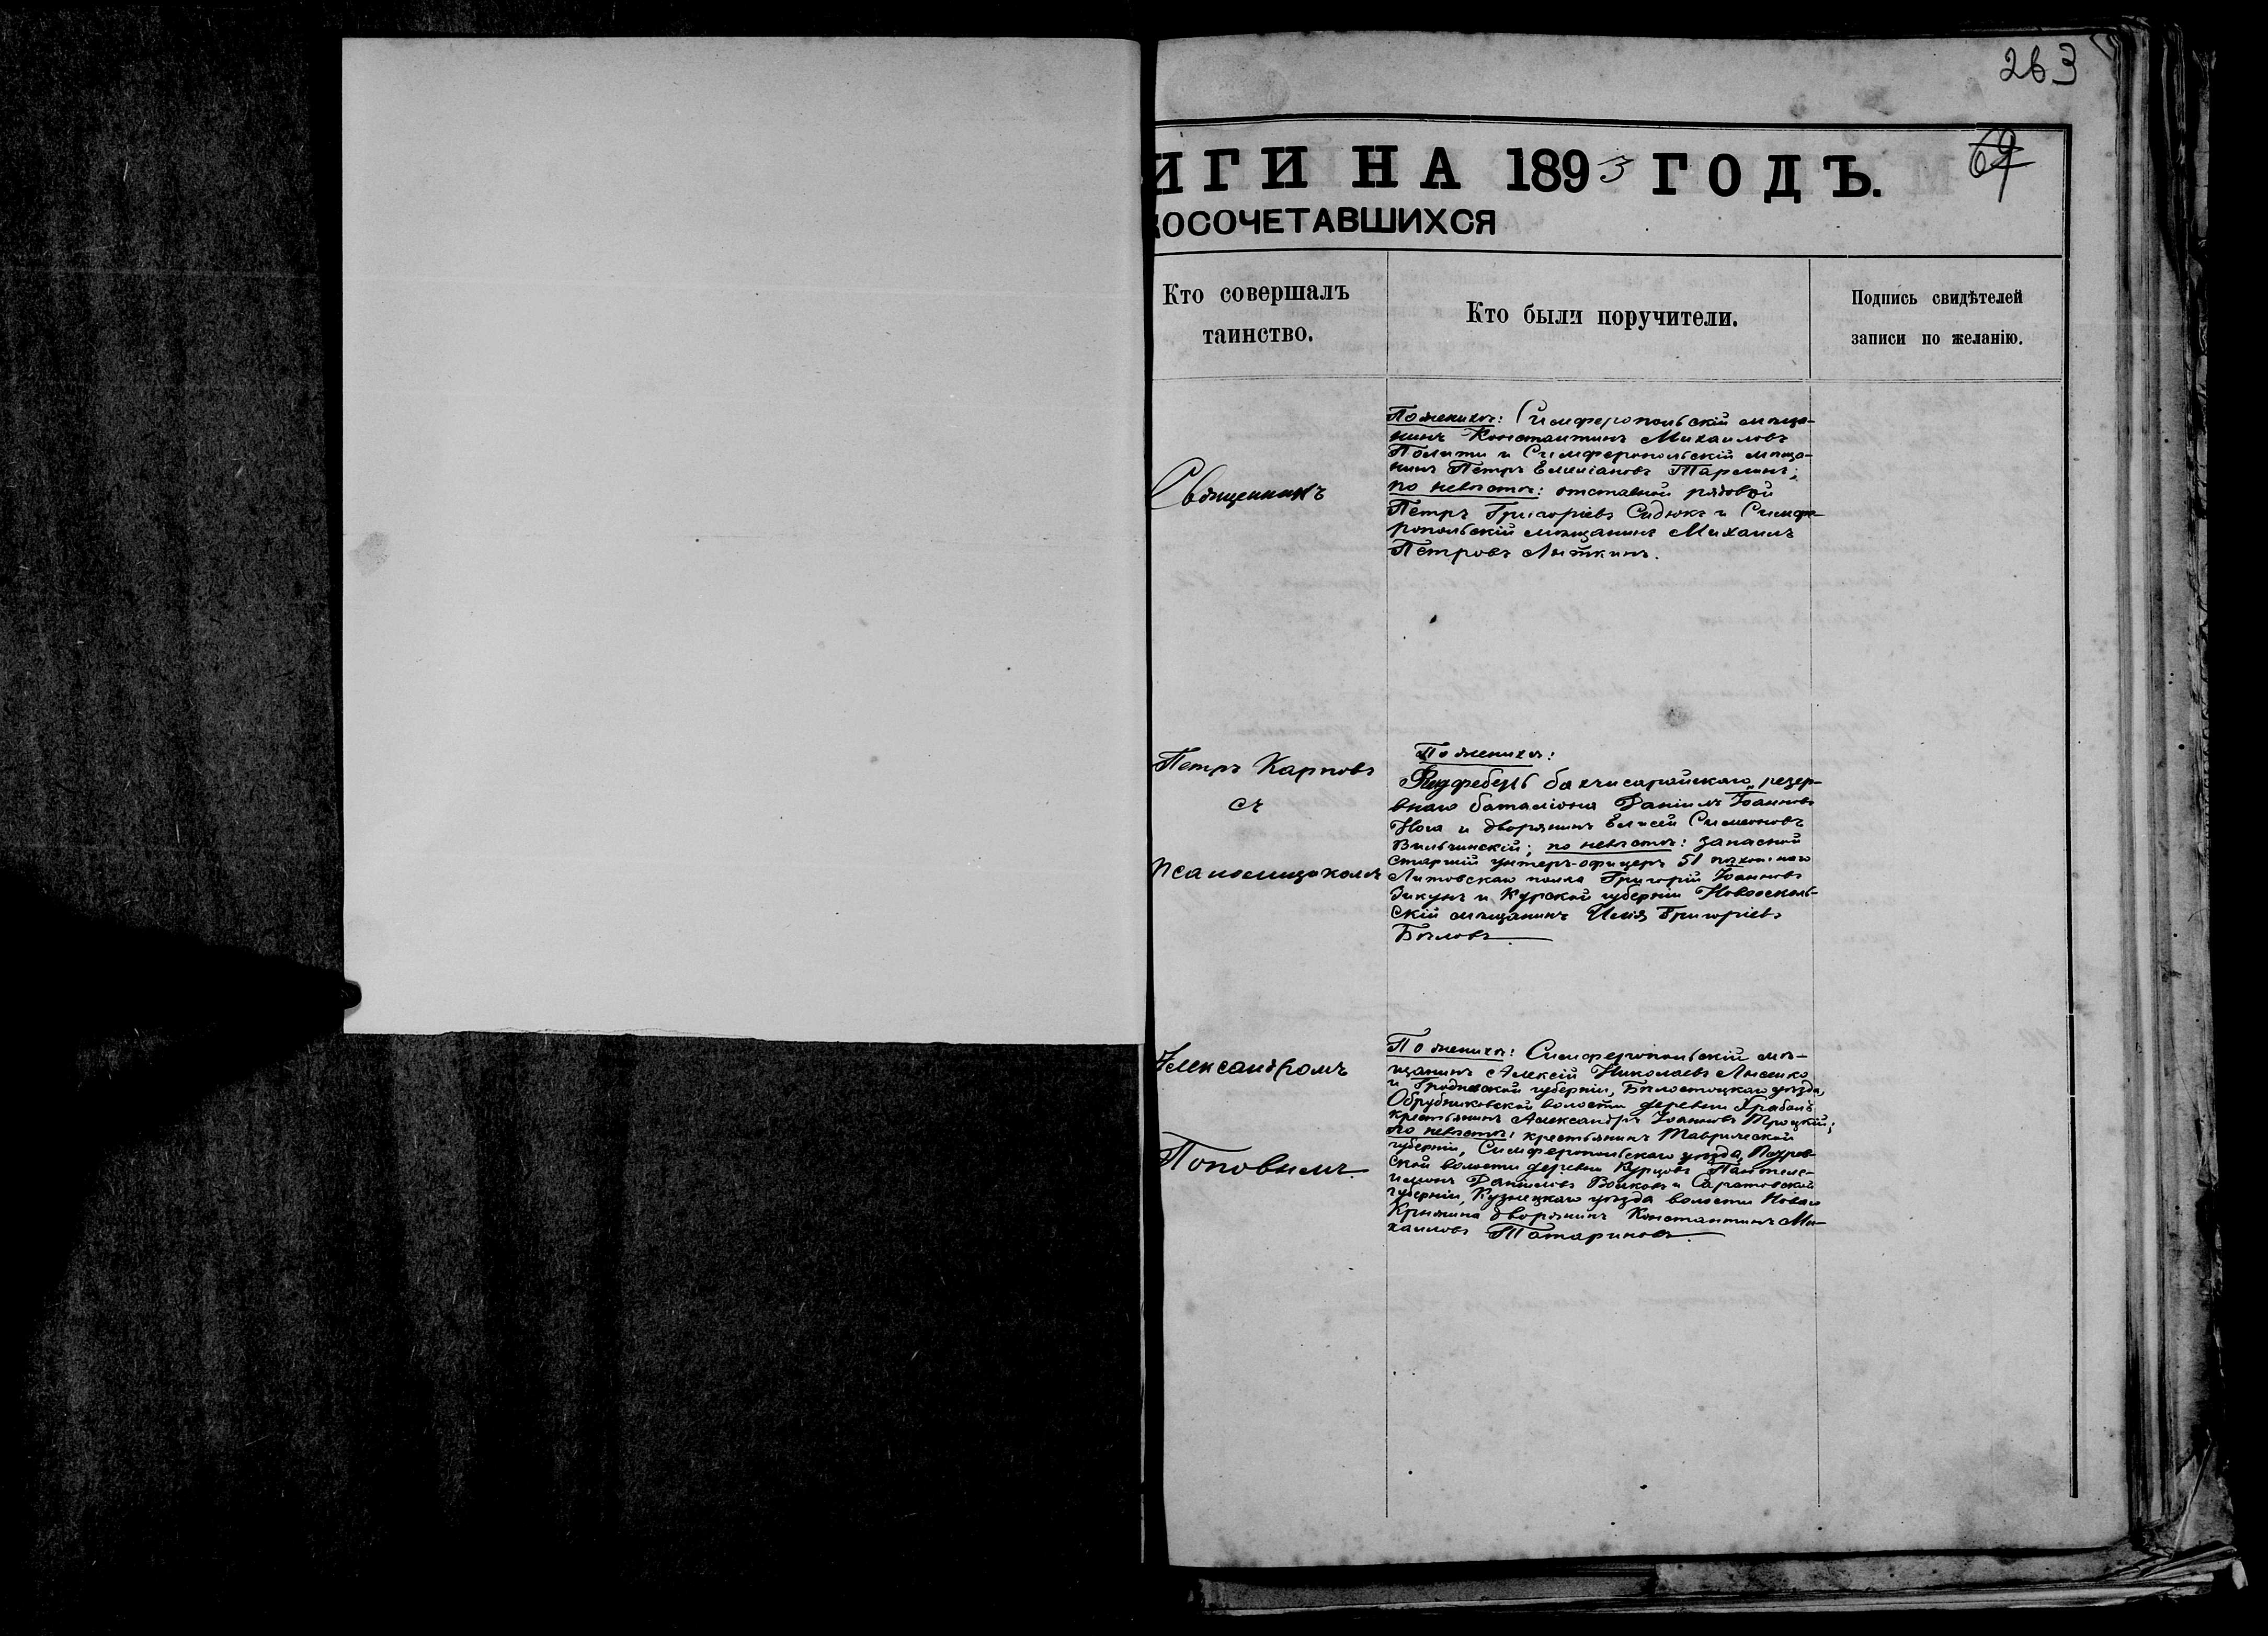 263
69
ИГИ НА 1893 ГОДЪ.
КОСОЧЕТАВШИХСЯ
Кто совершалъ
таинство.
Кто были поручители.
Подпись свидѣтелей
записи по желанію.
Священникъ
Петръ Карповъ
съ
псаломщикомъ
Александромъ
Поповымъ.
По женихѣ: Симферопольскій мѣща-
нинъ Константинъ Михаиловъ
Полити и Симферопольскій мѣща-
нинъ Петръ Емиліановъ
по невѣстѣ: отставной рядовой
Петръ Григоріевъ Сидюкъ и Симфе-
ропольскій мѣщанинъ Михаилъ
Петровъ Лыткинъ.
По женихѣ:
Фидфебель бахчисарайскаго резер-
внаго баталіона Даніилъ Іоанновъ
Нога и дворянинъ Елисей Симеоновъ
Вильчинскій; по невѣстѣ: запасной
старшій унтеръ-офицеръ 51 пѣхотнаго
Литовскаго полка Григорій Іоанновъ
Зикунъ и Курской губерніи Новоосколь-
скій мѣщанинъ Илія Григоріевъ
Бѣловъ
По женихѣ: Симферопольскій мѣ-
щанинъ Алексій Николаевъ Лысенко
и Гродненской губерніи, Бѣлостоцкаго уѣзда,
Обрубниковской волости деревни
крестьянинъ Александръ Іоанновъ Троцкій;
по невѣстѣ: крестьянинъ Таврической
губерніи, Симферопольскаго уѣзда, Подгов-
ской волости деревни Курцовъ Пантеле-
имонъ Даніиловъ Волковъ и Саратовской
губерніи, Кузнецкаго уѣзда волости Новаго
Крыжина дворянинъ Константинъ Ми-
хаиловъ Татариновъ.